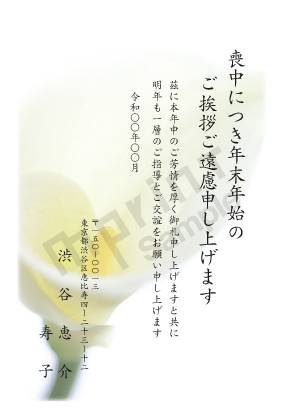 喪中につき年末年始の
ご挨拶ご遠慮申し上げます
茲に本年中のご芳情を厚く御礼申し上げますと共に
明年も一層のご指導とご交誼をお願い申し上げます
令和〇〇年〇〇月
〒一五〇-〇〇一三
東京都渋谷区恵比寿四-二十三-十二
渋谷恵介
寿子
Sample